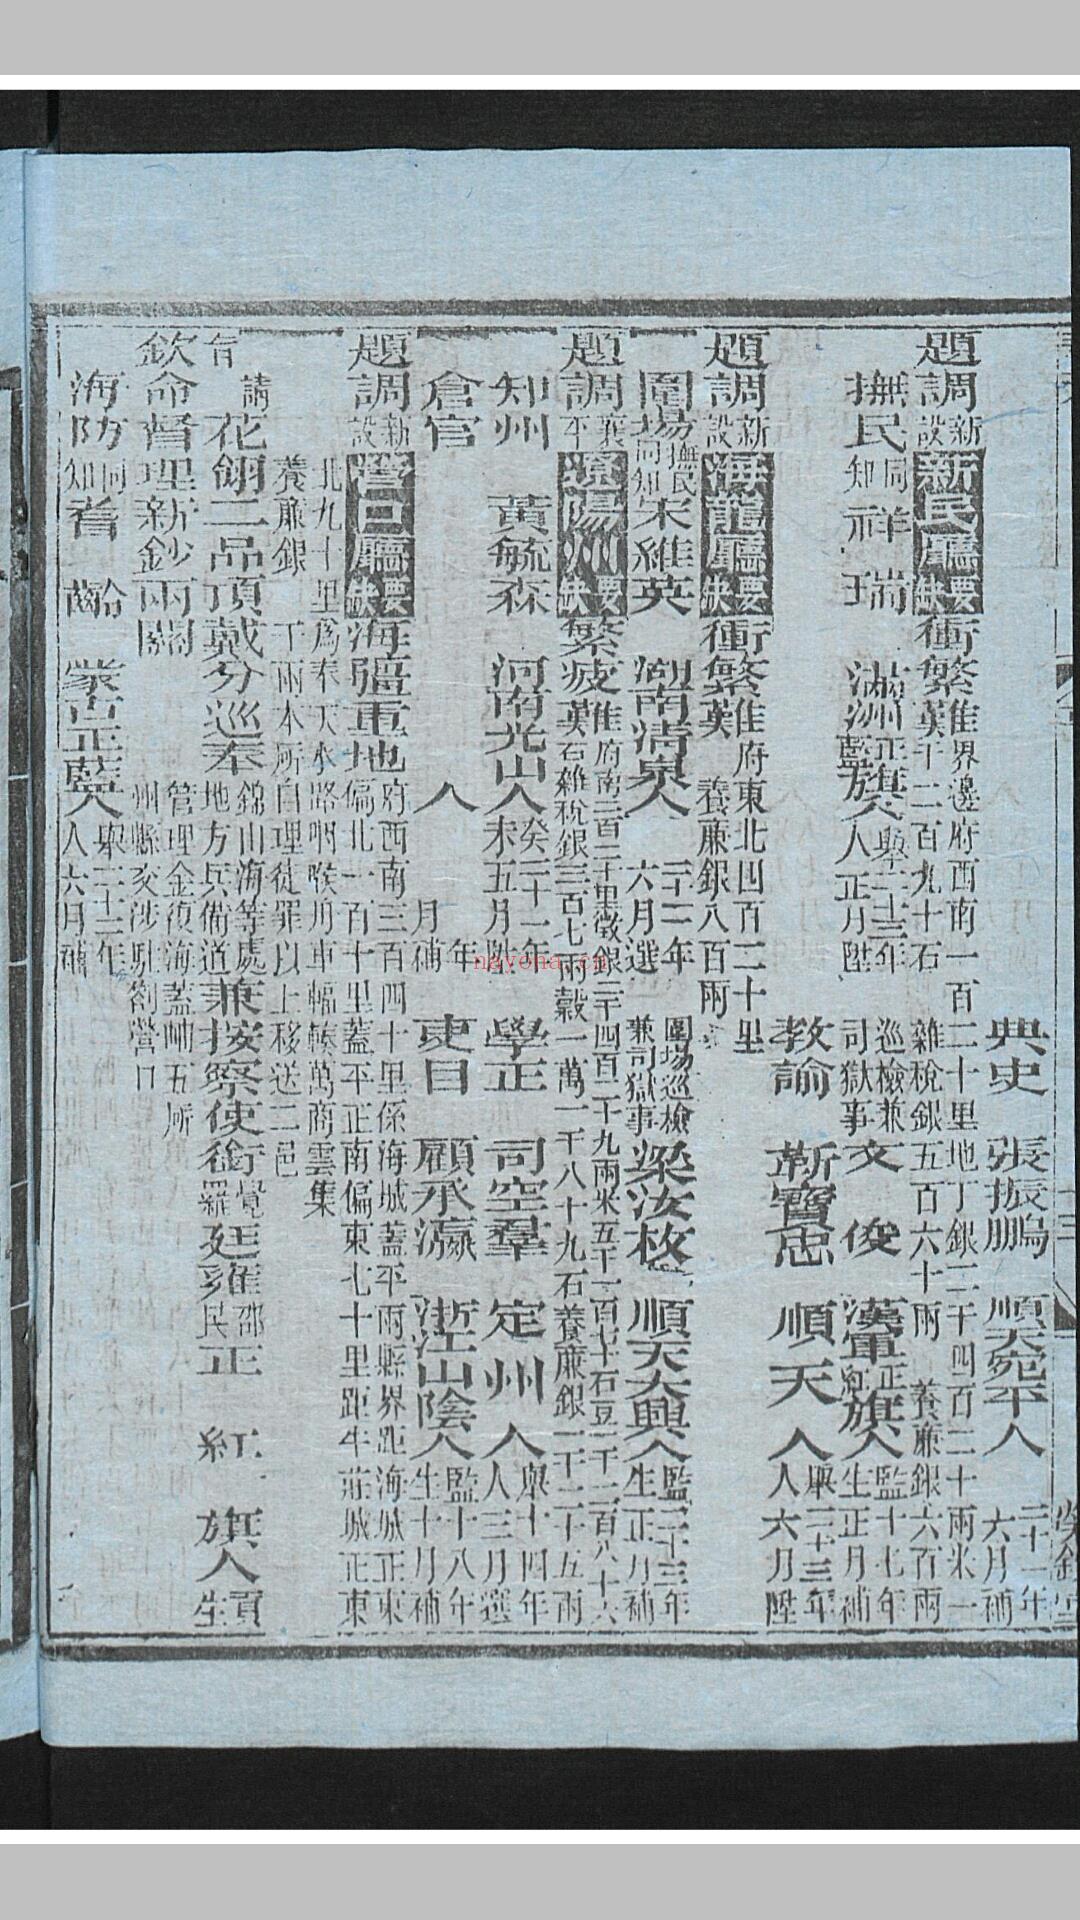 典史 張振鵬 順天宛平人 二十一年六月補
題調新設新民廳要缺衝繁難界邊府西南一百二十里地丁銀二千四百二十兩米一
英千二百九十石 雜稅銀五百六十兩 養廉銀六百兩
撫民同知祥瑞 滿洲正藍旗人舉二十三年人正月陞 巡檢兼司獄事文俊 漢軍正紅旗人監十七年生正月補
教諭 靳寶忠 順天人舉二十三年人六月陞
題調新設海龍廳要缺衝繁難府東北四百二十里
英 養廉銀八百兩
圍場撫民同知宋維英 湖南清泉人 二十二年六月選 圍場巡檢兼司獄事梁汝枚 順天大興人監二十三年生正月補
題調襄平遼陽州要缺繁疲難府南二百二十里徵銀二千四百二十九兩米五千一百七十石豆一千二百八十六
英石雜稅銀三百七兩穀一萬一千八十九石養廉銀一千二十五兩
知州 黃毓森 河南光山人癸未二十一年五月陞 學正 司空羣 定州人舉十四年人三月選
倉官 人 年月補 吏目 顧承瀛 浙江山陰人監十八年生十月補
題調新設營口廳要缺海疆重地府西南三百四十里係海城蓋平兩縣界距海城正東
偏北一百十里蓋平正南偏東七十里距牛莊城正東
北九十里為奉天水路咽喉舟車輻輳萬商雲集
養廉銀 千兩本所自理徒罪以上移送二邑
請旨花翎二品頂戴分巡奉錦山海等處地方兵備道兼按察使銜覺羅廷雍邵民正紅旗人貢生
欽命督理新鈔兩關管理金復海蓋岫五所
州縣交涉駐劄營口
海防同知耆齡 蒙古正藍人舉二十二年人六月補
nayona.cn